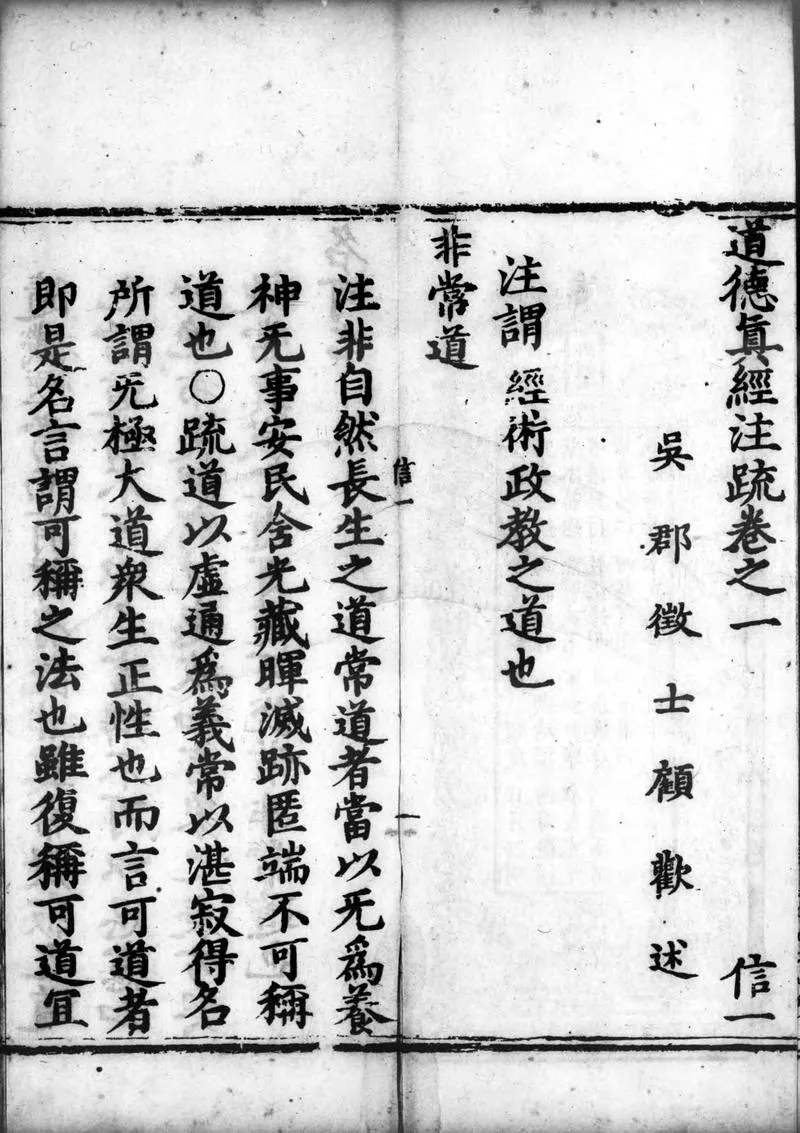 道德眞經注疏卷之一 信一
吳郡徵士顧歡述
注謂經術政教之道也
非常道
信一
一
注非自然長生之道常道者當以旡爲養
神旡事安民含光藏暉滅跡匿端不可稱
道也○疏道以虛通爲義常以湛寂得名
所謂旡極大道衆生正性也而言可道者
即是名言謂可稱之法也雖復稱可道宜